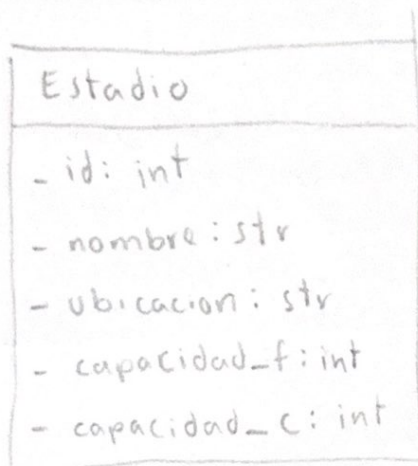 Estadio
- id: int
- nombre: str
- ubicacion: str
- capacidad_f: int
- capacidad_c: int